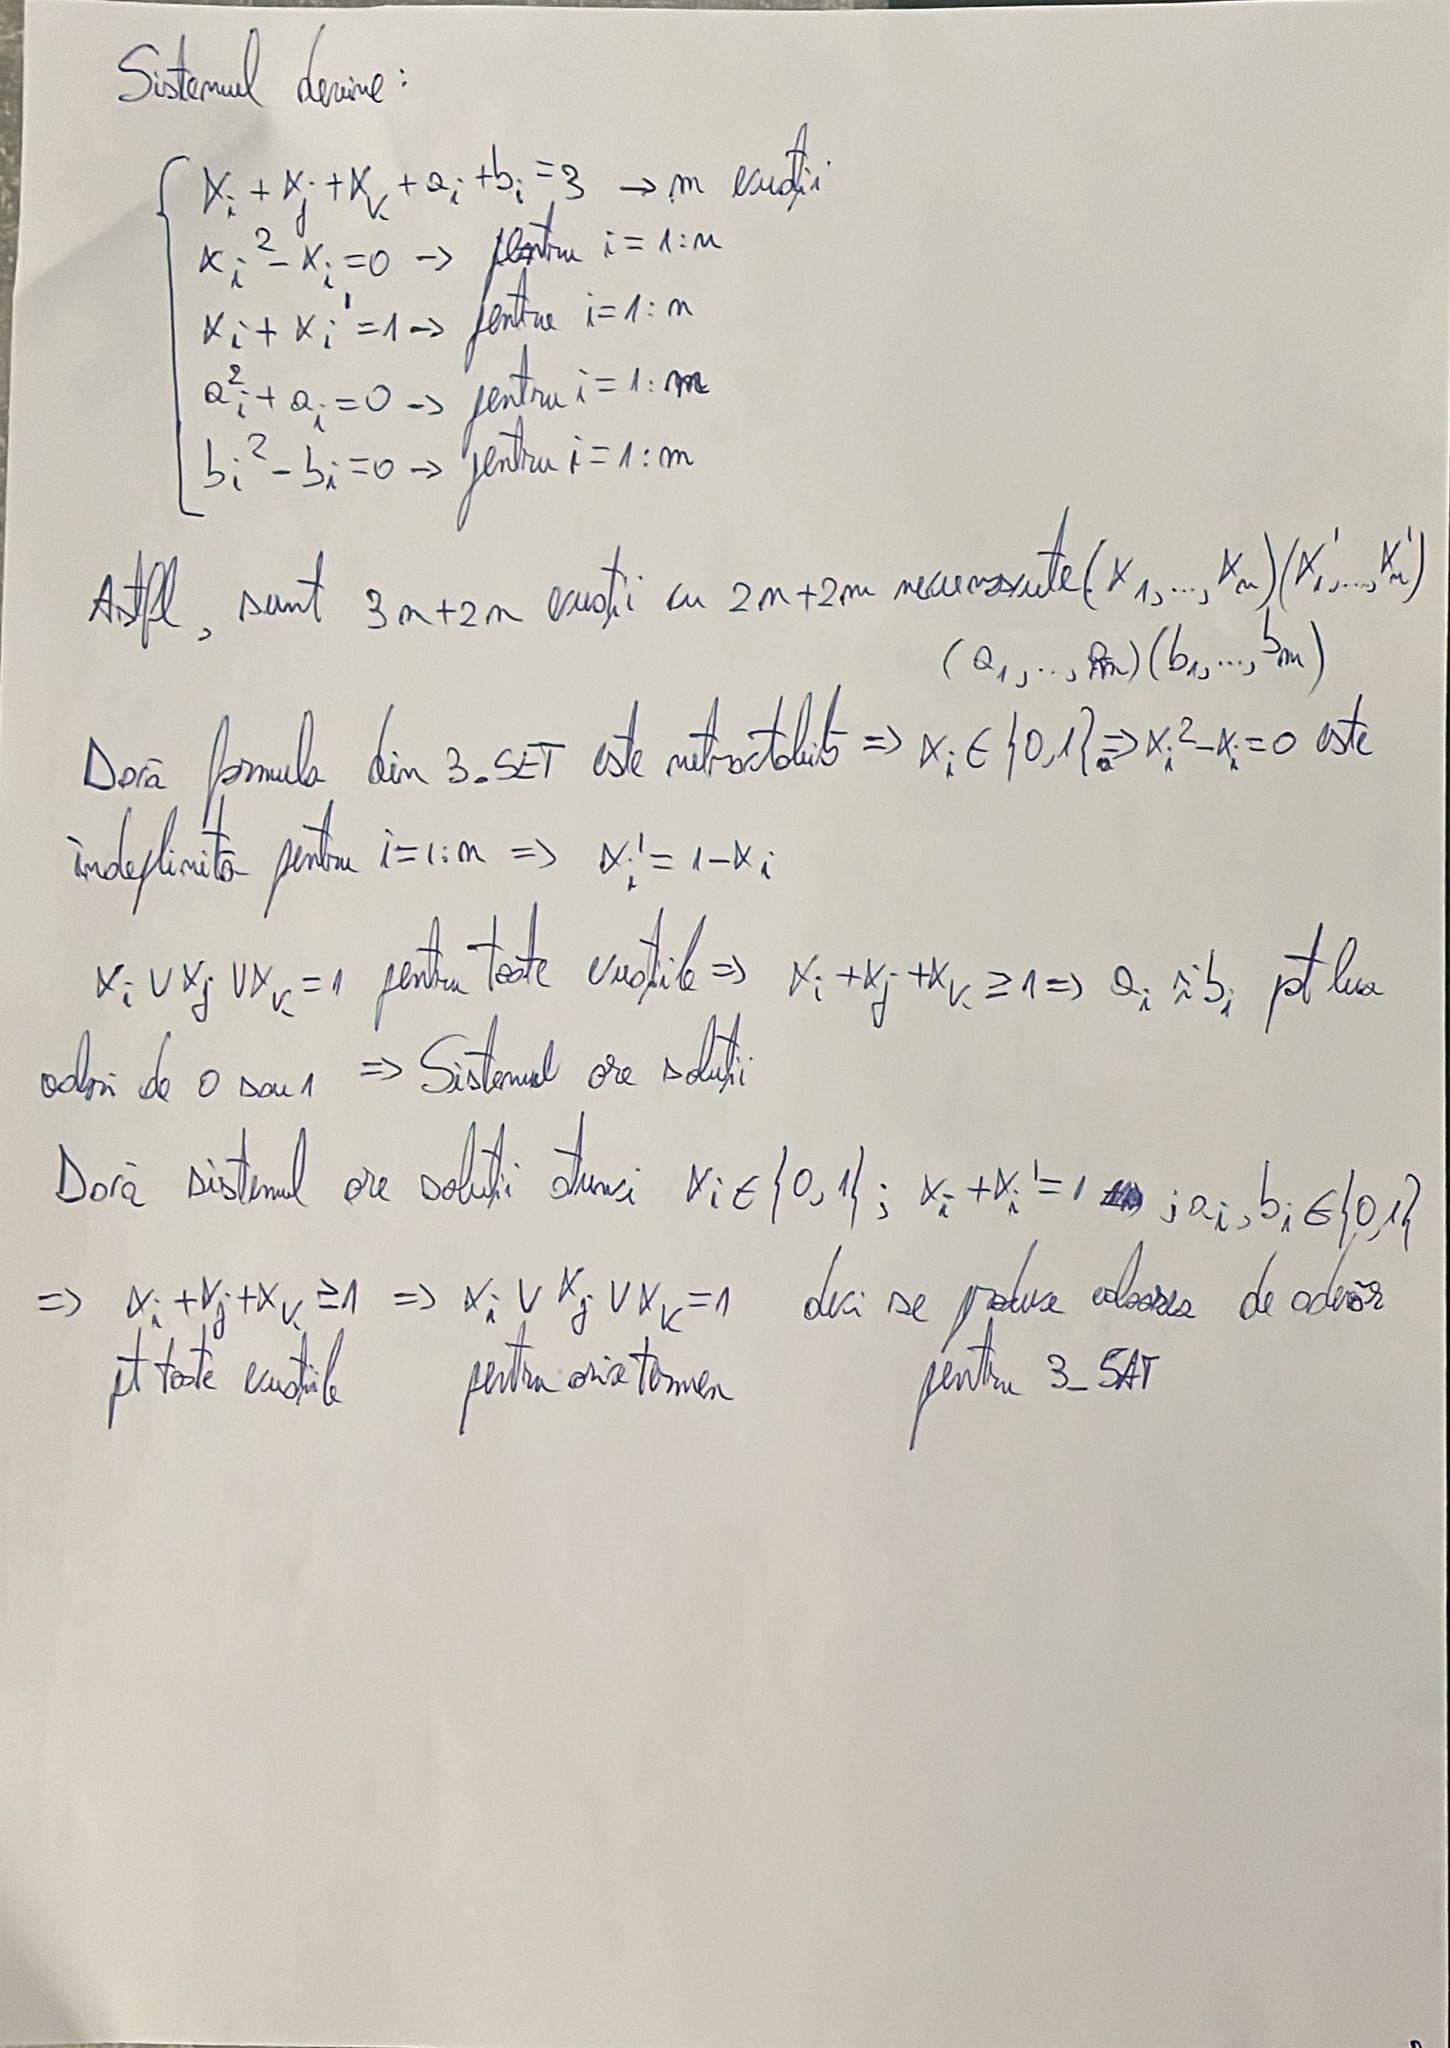 Sistemul devine:
xᵢ + xⱼ + xₖ + aᵢ + bᵢ = 3 → m ecuații
xᵢ² - xᵢ = 0 → pentru i = 1:n
xᵢ + xᵢ' = 1 → pentru i = 1:n
aᵢ² + aᵢ = 0 → pentru i = 1:m
bᵢ² - bᵢ = 0 → pentru i = 1:m
Astfel, sunt 3m+2n ecuații cu 2n+2m necunoscute (x₁, ..., xₙ)(x₁', ..., xₙ')
(a₁, ..., aₘ)(b₁, ..., bₘ)
Dacă formula din 3_SET este => xᵢ ∈ {0,1} => xᵢ² - xᵢ = 0 este
îndeplinită pentru i = 1:n => xᵢ' = 1 - xᵢ
xᵢ ∨ xⱼ ∨ xₖ = 1 pentru toate ecuațiile => xᵢ + xⱼ + xₖ ≥ 1 => aᵢ și bᵢ pt lua
valori de 0 sau 1 => Sistemul are soluții
Dacă sistemul are soluții atunci xᵢ ∈ {0,1}; xᵢ + xᵢ' = 1 ; aᵢ, bᵢ ∈ {0,1}
=> xᵢ + xⱼ + xₖ ≥ 1 => xᵢ ∨ xⱼ ∨ xₖ = 1 deci se produce valoarea de adevăr
pt toate ecuațiile pentru orice termen pentru 3_SAT